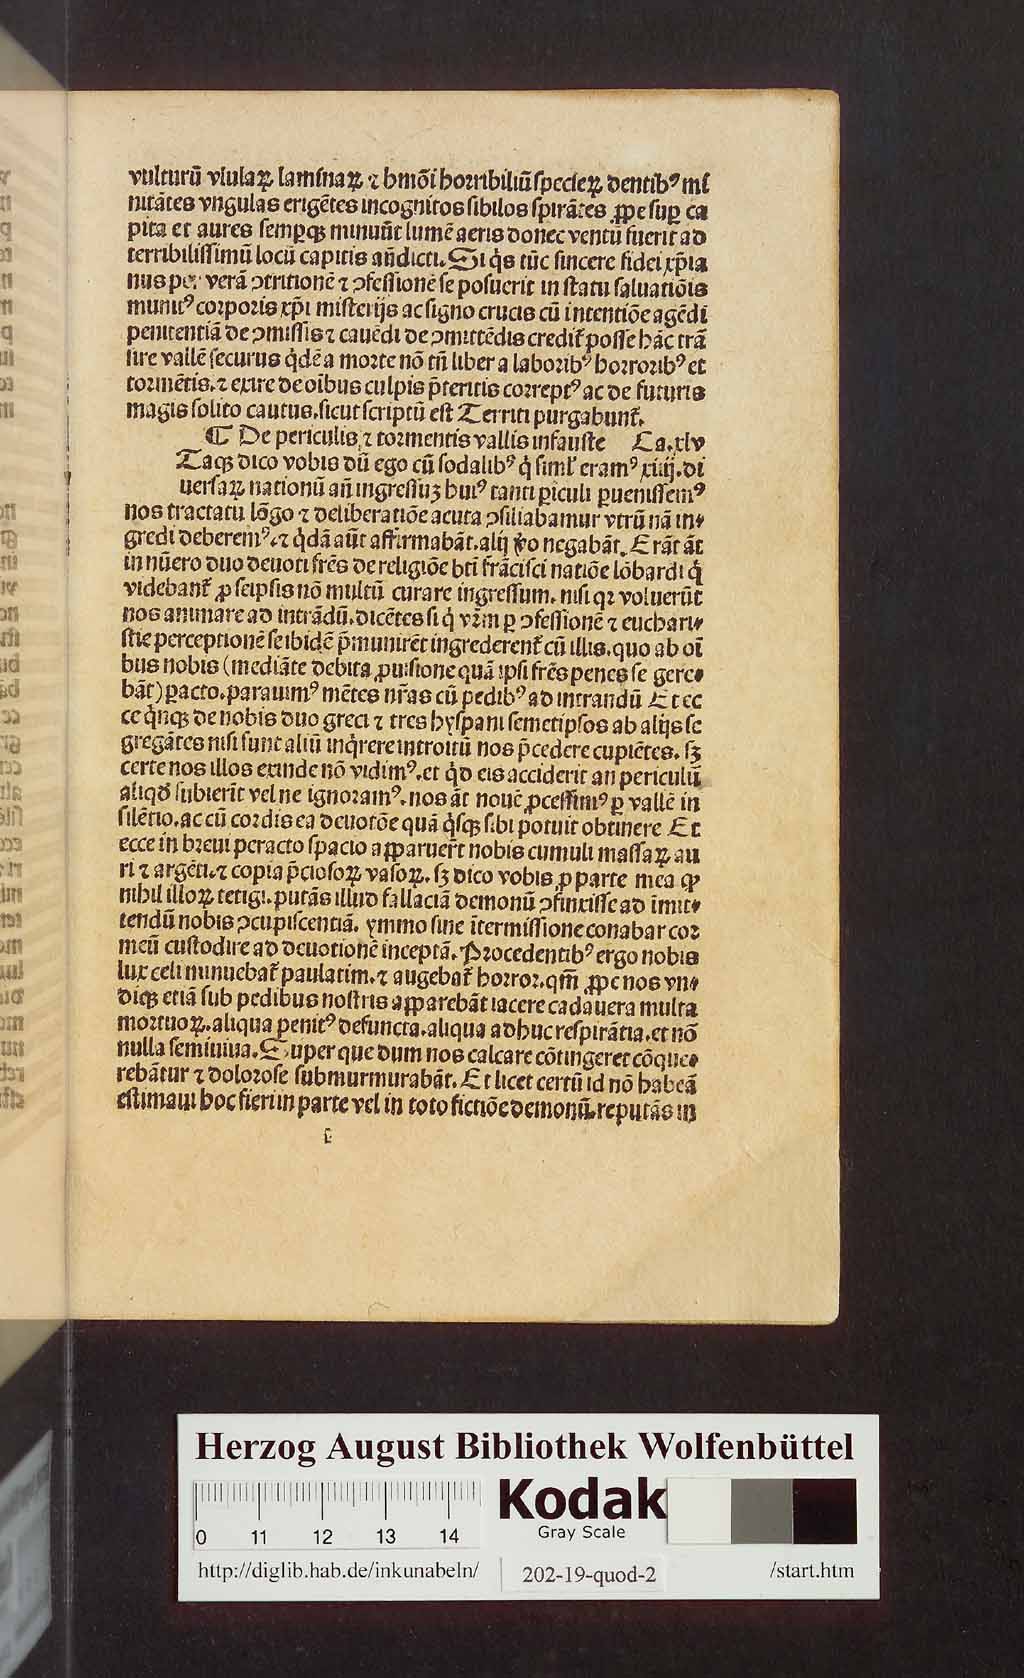 vulturū vlulaꝝ laminaꝝ ⁊ hm̄oi horribiliū specieꝝ dentibꝰ mi
nitātes vngulas erigētes incognitos sibilos spirātes ꝓpe suꝑ ca
pita et aures semꝑqꝫ minuūt lumē aeris donec ventū fuerit ad
terribilissimū locū capitis an̄dicti. Si q̇s tūc sincere fidei xp̄ia
nus per verā ꝯtritionē ⁊ ꝯfessionē se posuerit in statu saluatiōis
munitꝰ corporis xp̄i misterijs ac signo crucis cū intentiōe agēdi
penitentiā de ꝯmissis ⁊ cauēdi de ꝯmittēdis credit᷑ posse hāc trā
sire vallē securus q̇dē a morte nō tn̄ liber a laboribꝰ horroribꝰ et
tormētis. ⁊ exire de oībus culpis p̄teritis correptꝰ ac de futuris
magis solito cautus. sicut scriptū est Territi purgabunt᷑.
¶ De periculis ⁊ tormentis vallis infauste Ca. xlv
Taqꝫ dico vobis dū ego cū sodalibꝰ q̇ siml̓ eramꝰ xiiij. di
uersaꝝ nationū an̄ ingressuꝫ huiꝰ tanti ꝑiculi ꝑuenissemꝰ
nos tractatu lōgo ⁊ deliberatiōe acuta ꝯsiliabamur vtrū nā in⸗
gredi deberemꝰ. ⁊ q̇dā aūt affirmabāt. alij ꝟo negabāt. Erāt āt
in nūero duo deuoti frēs de religiōe bt̄i frācisci natiōe lōbardi q̇
videbant᷑ ꝓ seipsis nō multū curare ingressum. nisi qꝛ voluerūt
nos animare ad intrādū. dicētes si q̇ vr̄m ꝑ ꝯfessionē ⁊ euchari⸗
stie perceptionē se ibidē p̄munirēt ingrederent᷑ cū illis. quo ab oī
bus nobis (mediāte debita ꝓuisione quā ipsi frēs penes se gere⸗
bāt) ꝑacto. parauimꝰ mētes nr̄as cū pedibꝰ ad intrandū Et ec
ce q̇nqꝫ de nobis duo greci ⁊ tres hyspani semetipsos ab alijs se
gregātes nisi sunt aliū inq̇rere introitū nos p̄cedere cupiētes. sꝫ
certe nos illos exinde nō vidimꝰ. et q̇d eis acciderit an periculū
aliqd̓ subierīt vel ne ignoramꝰ. nos āt nouē ꝓcessimꝰ ꝑ vallē in
silētio. ac cū cordis ea deuotōe quā q̇sqꝫ sibi potuit obtinere Et
ecce in breui peracto spacio aꝑparuer̄t nobis cumuli massaꝝ au
ri ⁊ argēti. ⁊ copia p̄ciosoꝝ vasoꝝ. sꝫ dico vobis ꝓ parte mea ꝙ
nihil illoꝝ tetigi. putās illud fallaciā demonū ꝯfinxisse ad īmit⸗
tendū nobis ꝯcupiscentiā. ymmo sine ītermissione conabar cor
meū custodire ad deuotionē inceptā. Procedentibꝰ ergo nobis
lux celi minuebat᷑ paulatim. ⁊ augebat᷑ horror. qm̄ ꝓpe nos vn⸗
diqꝫ etiā sub pedibus nostris aꝑparebāt iacere cadauera multa
mortuoꝝ. aliqua penitꝰ defuncta. aliqua adhuc respirātia. et nō
nulla semiuiua. Super que dum nos calcare cōtingeret cōque⸗
rebātur ⁊ dolorose submurmurabāt. Et licet certū id nō habeā
estimaui hoc fieri in parte vel in toto fictiōe demonū. reputās in
Herzog August Bibliothek Wolfenbüttel
0 11 12 13 14
Kodak
Gray Scale
http://diglib.hab.de/inkunabeln/ 202-19-quod-2 /start.htm